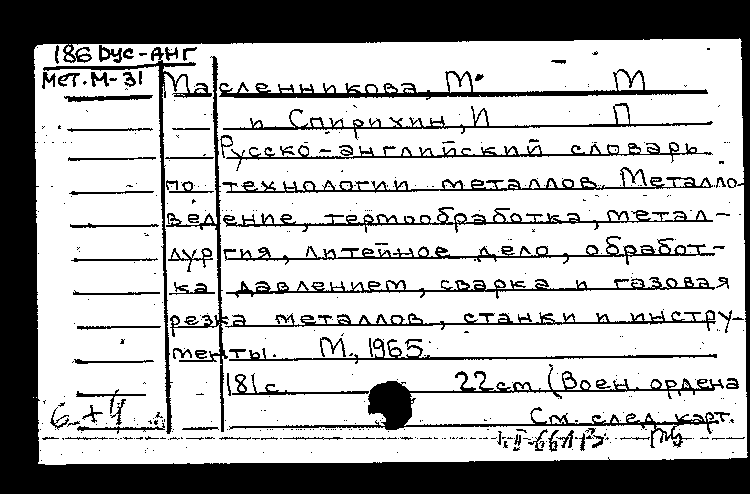 186 Рус-АНГ
Мет. М-31
Масленникова, М. М
и Спирихин, И П
Русско-английский словарь
по технологии металлов. Металло-
ведение, термообработка, метал-
лургия, литейное дело, обработ-
ка давлением, сварка и газовая
резка металлов, станки и инстру-
менты. М., 1965.
181 с. 22 cm. (Воен. ордена
См. след. карт.
6+4